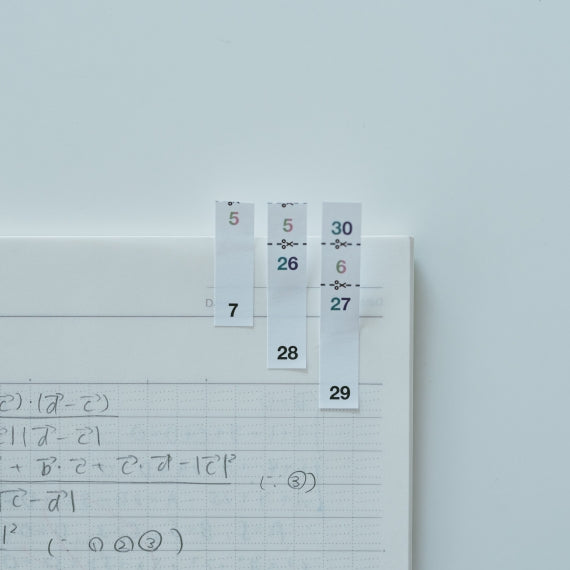 5
7
5
26
28
30
6
27
29
c⃗)·(d⃗-c⃗)
c⃗||d⃗-c⃗|
+ b⃗·c⃗ + c⃗·d⃗ - |c⃗|²
(∵ ③)
|c⃗-d⃗|
|² (∵ ① ② ③)